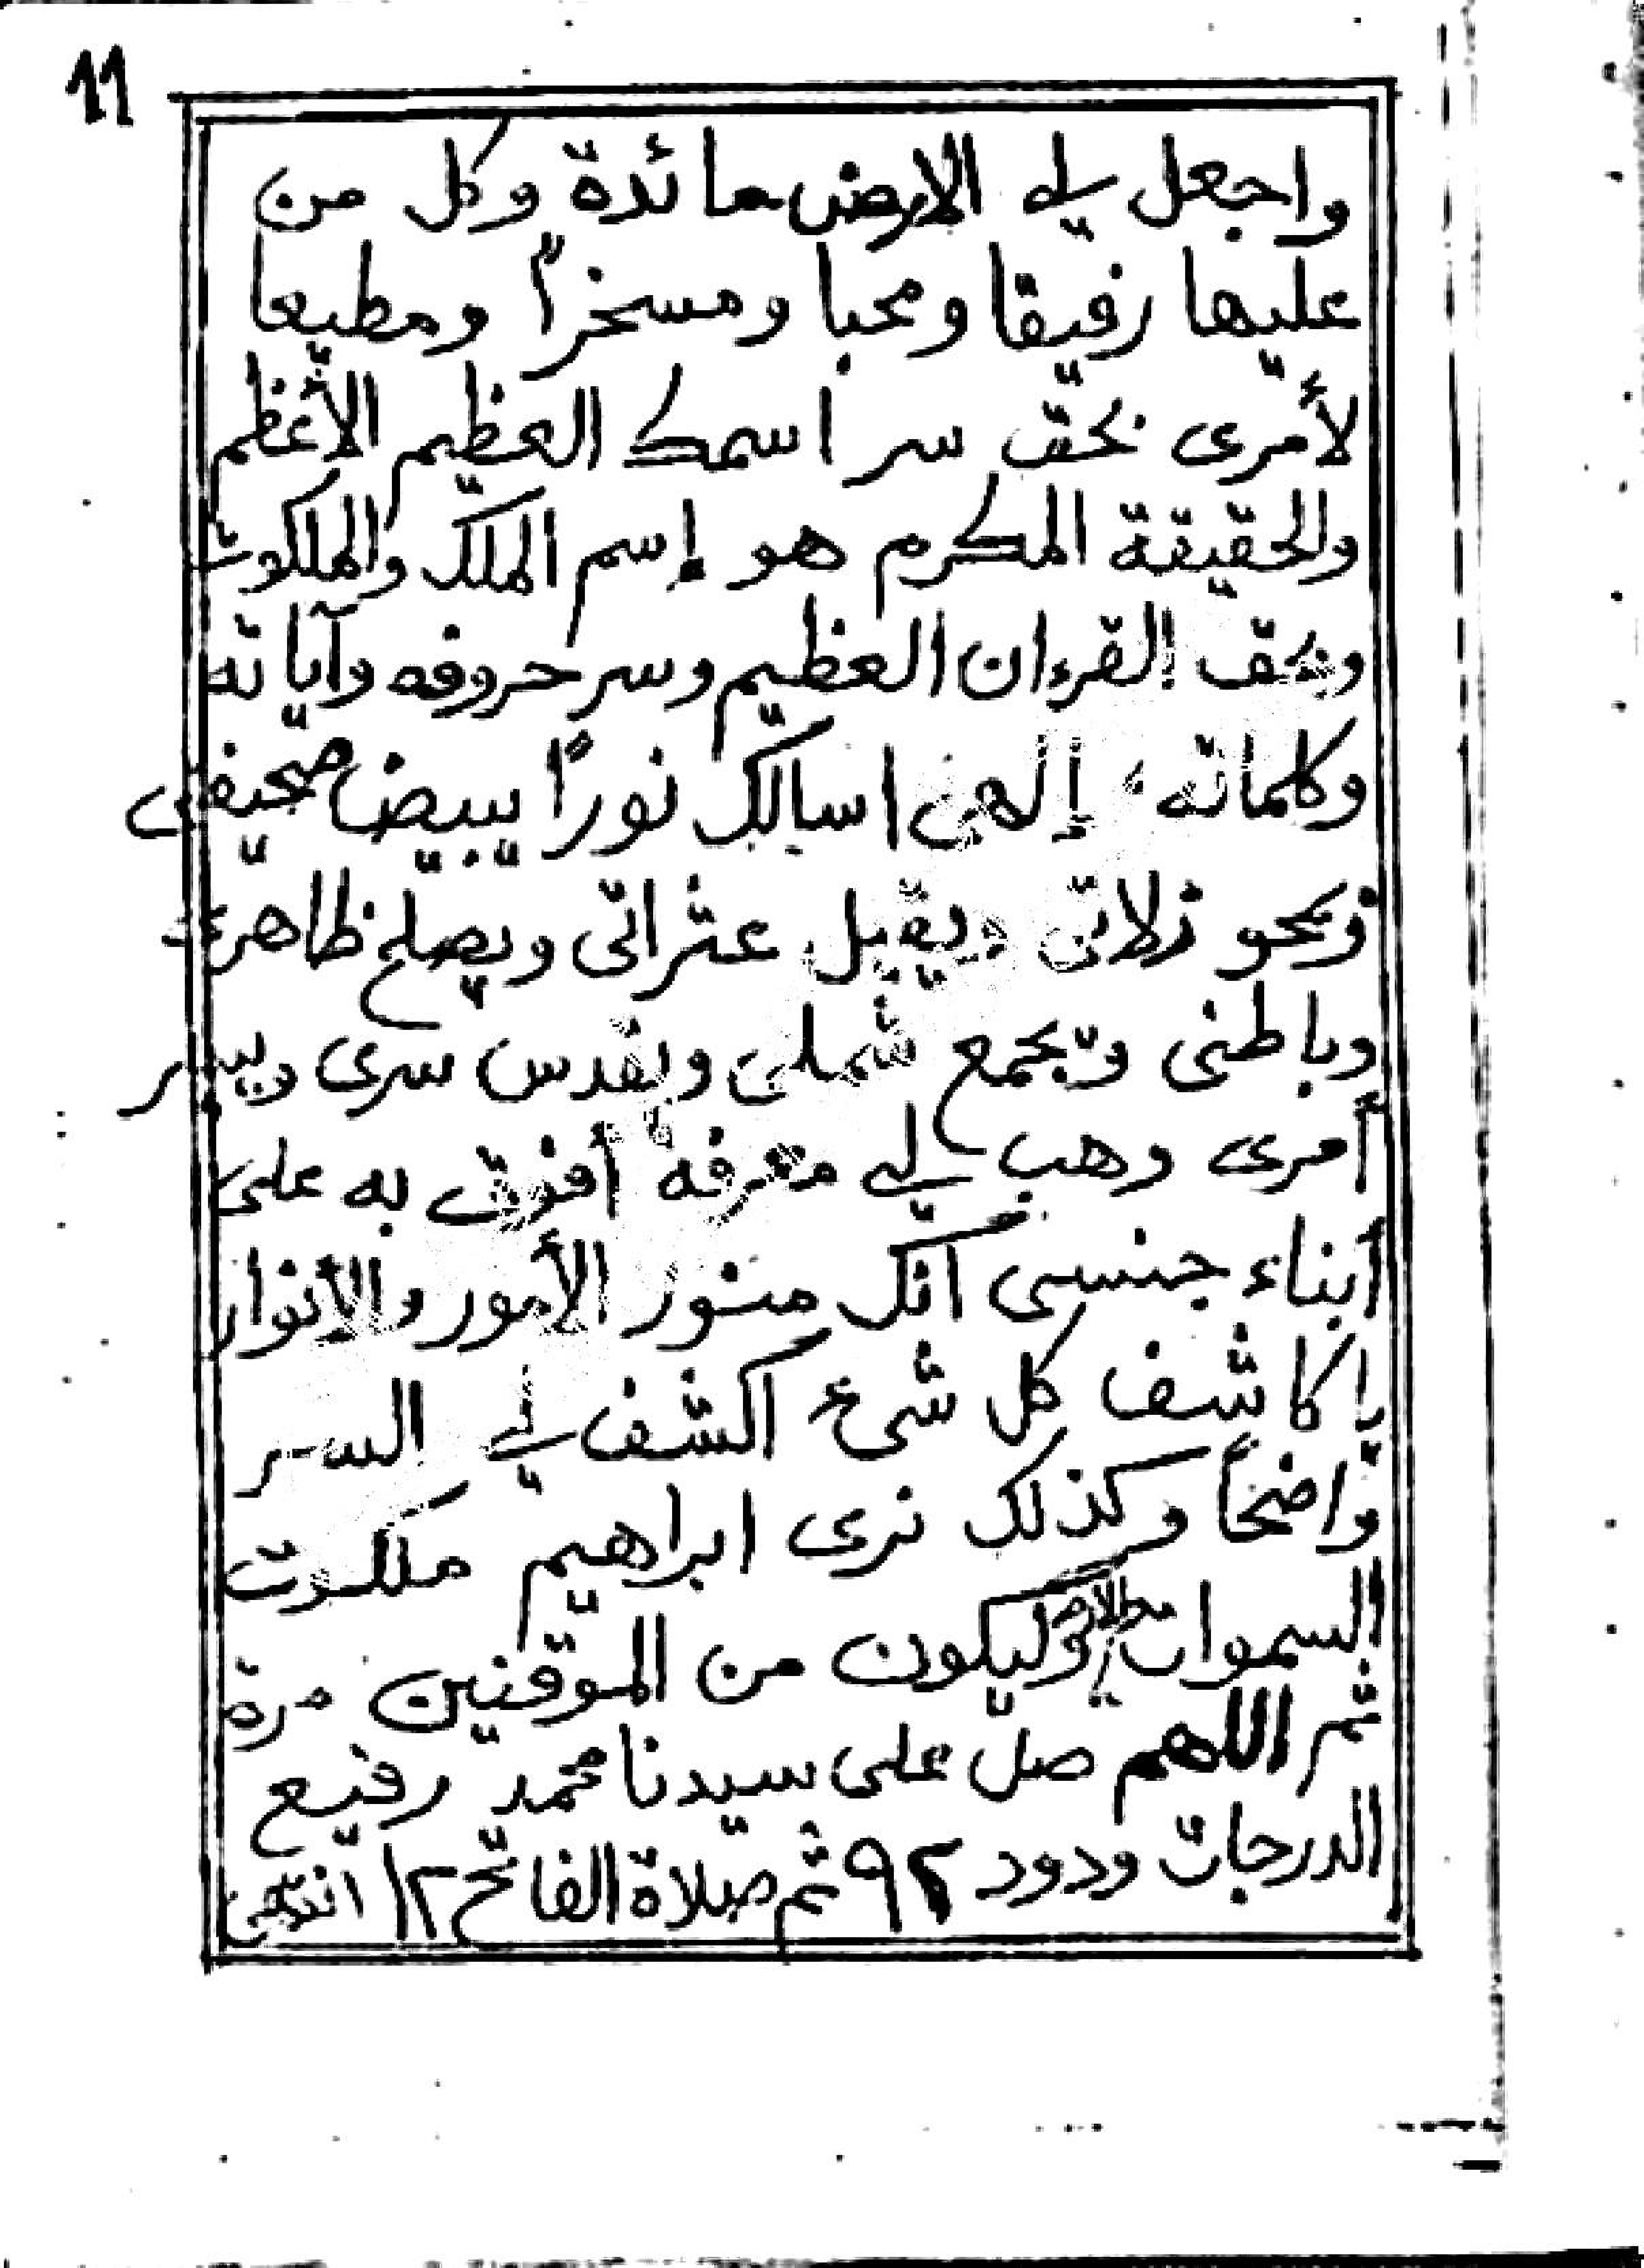 11
واجعل لي الارض مائدة وكل من
عليها رفيقا ومحبا ومسخراً ومطيعا
لأمرى بحق سر اسمك العظيم الأعظم
والحقيقة المكرم هو إسم الملك والملكوت
وبحق القرءان العظيم وسر حروفه وآياته
وكلماته، إلهى اسالك نوراً يبيض صحيفى
ويمحو زلاتى ويقيل عثراتى ويصلح ظاهرى
وباطنى ويجمع شملى ويقدس سرى وييسر
أمرى وهب لي معرفة أفوق به على
أبناء جنسى انك منور الأمور والأنوار
ياكاشف كل شىء اكشف لي السر
واضحاً وكذلك نرى ابراهيم ملكوت
السموات والارض وليكون من الموقنين مرة
ثم اللهم صل على سيدنا محمد رفيع
الدرجات ودود ٩٢ ثم صلاة الفاتح ١٢ انتهى